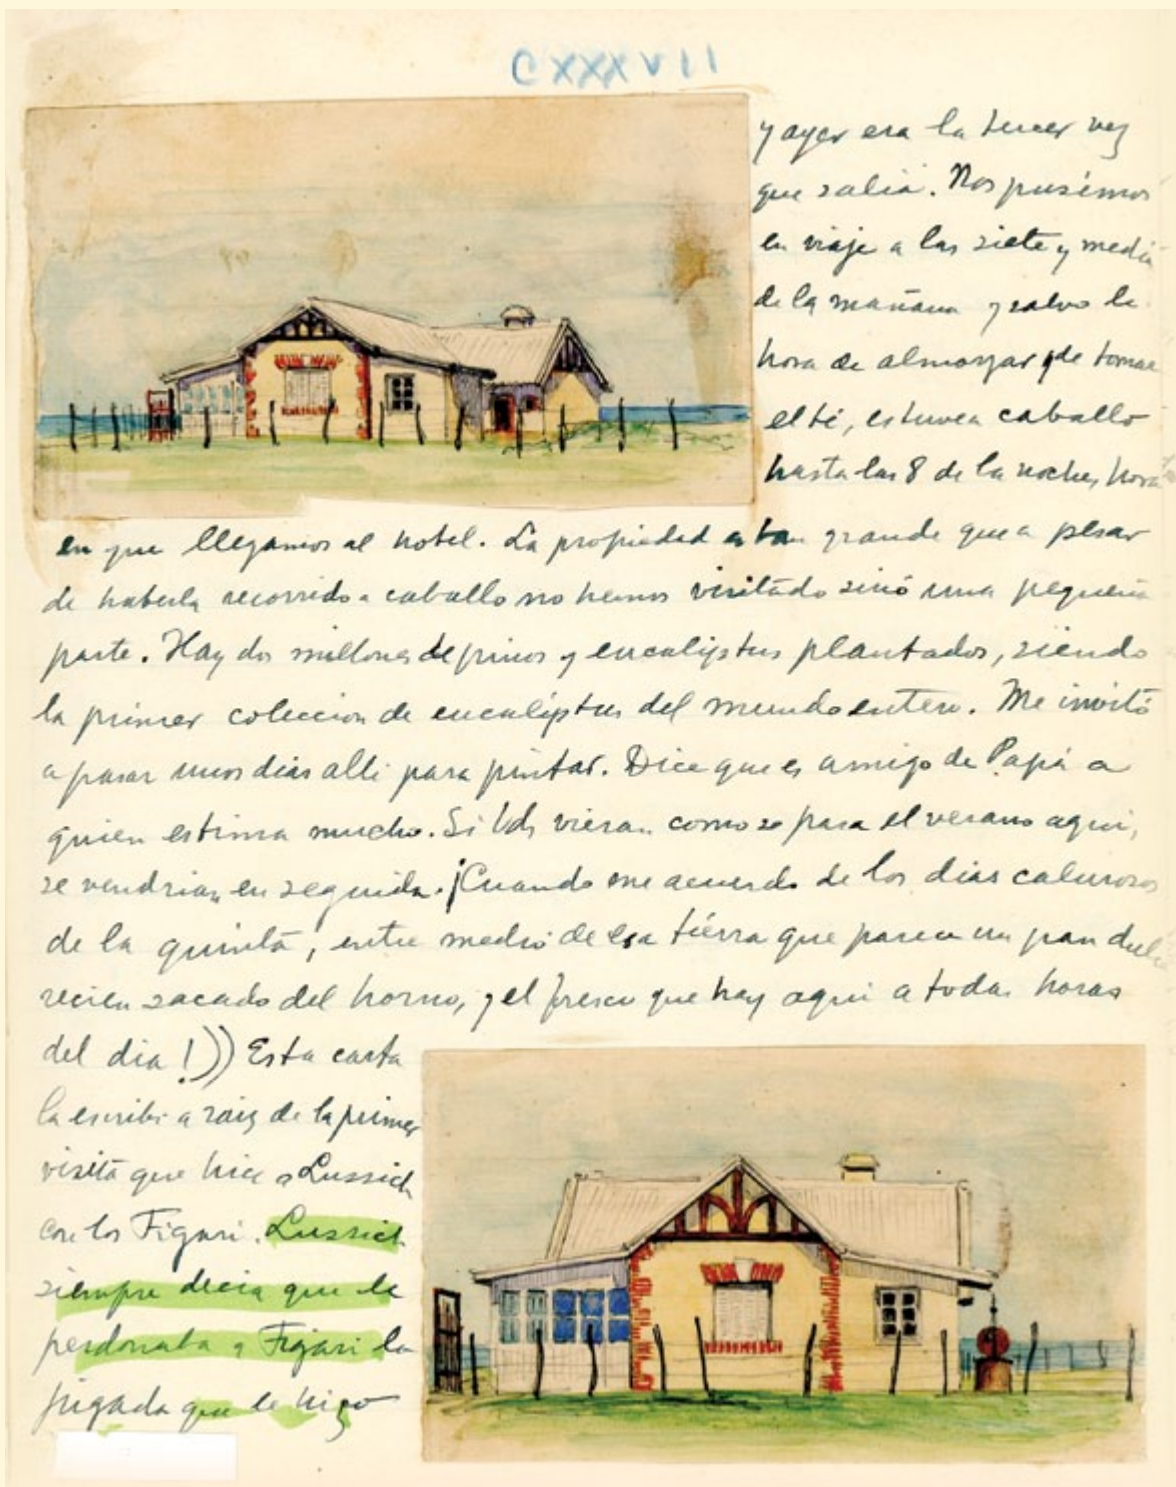 CXXXVII
y ayer era la tercer vez
que salia. Nos pusimos
en viaje a las siete y media
de la mañana y salvo la
hora de almorzar y de tomar
el té, estuve a caballo
hasta las 8 de la noche, hora
en que llegamos al hotel. La propiedad es tan grande que a pesar
de haberla recorrido a caballo no hemos visitado sinó una pequeña
parte. Hay dos millones de pinos y eucaliptus plantados, siendo
la primer coleccion de eucaliptus del mundo entero. Me invitó
a pasar unos dias alli para pintar. Dice que es amigo de Papá a
quien estima mucho. Si Vds vieran como se pasa el verano aqui,
se vendrian en seguida. ¡Cuando me acuerdo de los dias calurosos
de la quinta, entre medio de esa tierra que parece un pan dulce
recien sacado del horno, y el fresco que hay aqui a todas horas
del dia!)) Esta carta
la escribi a raiz de la primer
visita que hice a Lussich
con los Figari. Lussich
siempre decia que le
perdonaba a Figari la
jugada que le hizo